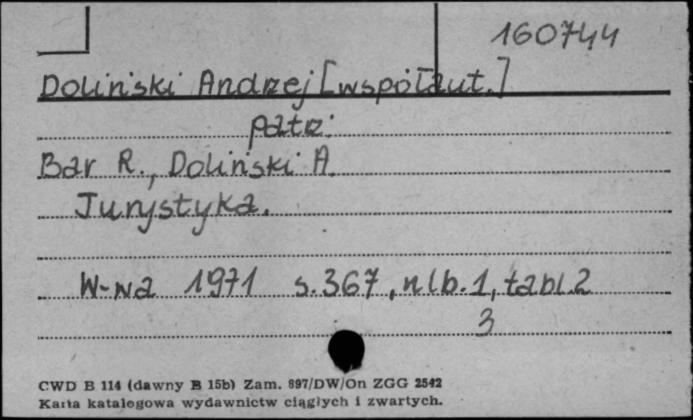 160744
Doliński Andrzej [współaut.]
patrz:
Bar R., Doliński A.
Turystyka.
W-wa 1971 s. 367, nlb. 1, tabl. 2
3
CWD B 114 (dawny B 15b) Zam. 897/DW/On ZGG 2542
Karta katalogowa wydawnictw ciągłych i zwartych.